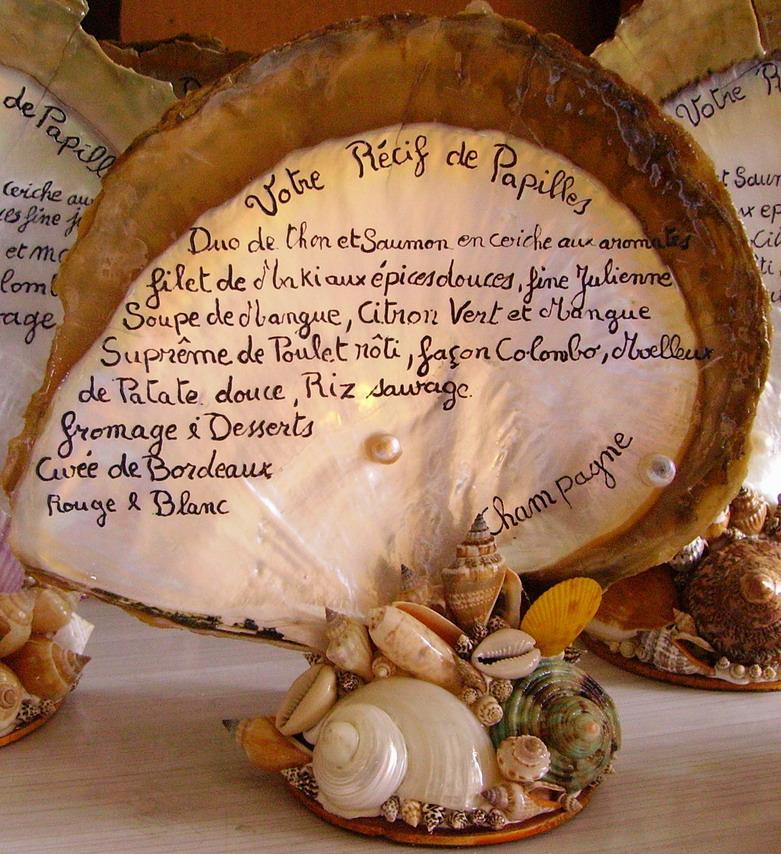 Votre Récif de Papilles
Duo de Thon et Saumon en ceviche aux aromates
filet de Maki aux épices douces, fine Julienne
Soupe de Mangue, Citron Vert et Mangue
Suprême de Poulet rôti, façon Colombo, Moelleux
de Patate douce, Riz sauvage.
fromage & Desserts
Cuvée de Bordeaux
Rouge & Blanc
Champagne
de Papill
ceviche au
es fine j
et m
lomb
age
Votre R
t Saum
x ép
Ci
ti